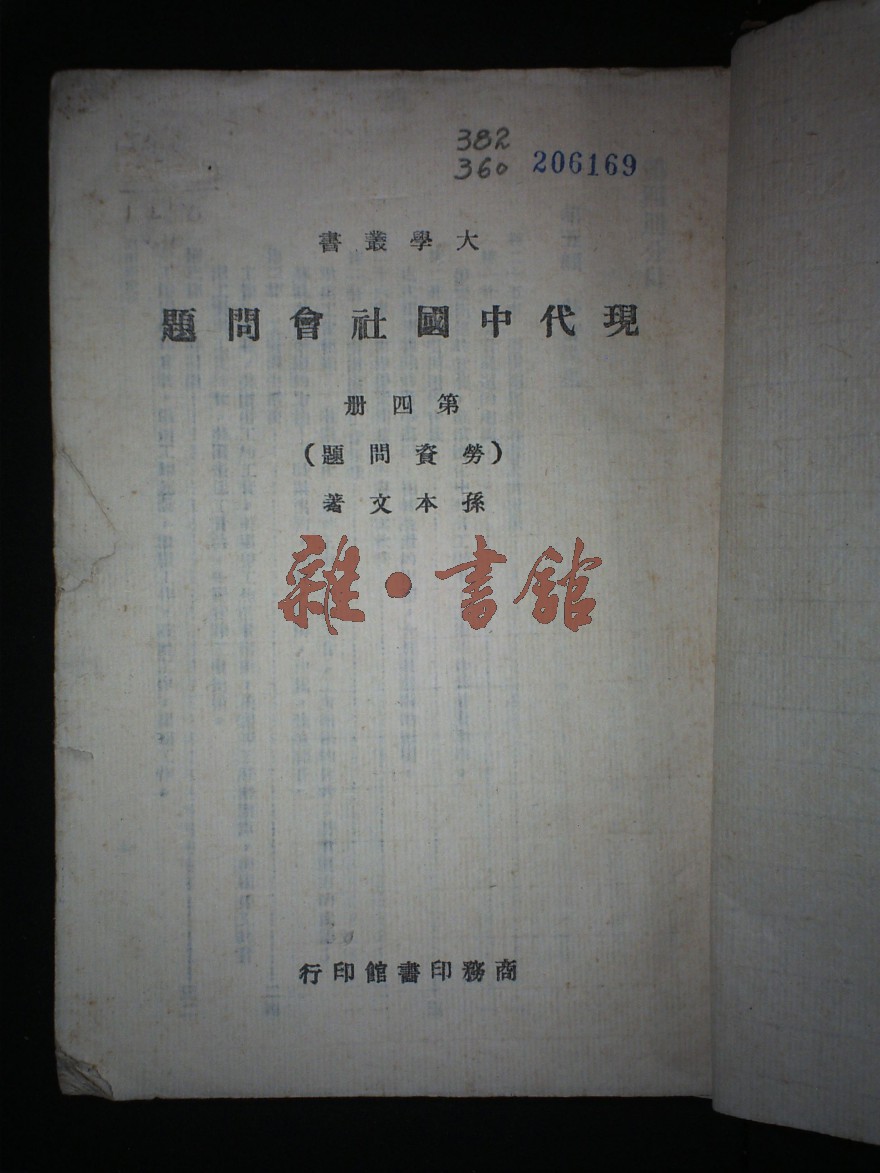 382
360 206169
大學叢書
現代中國社會問題
第四册
(勞資問題)
孫本文著
雜·書館
商務印書館印行